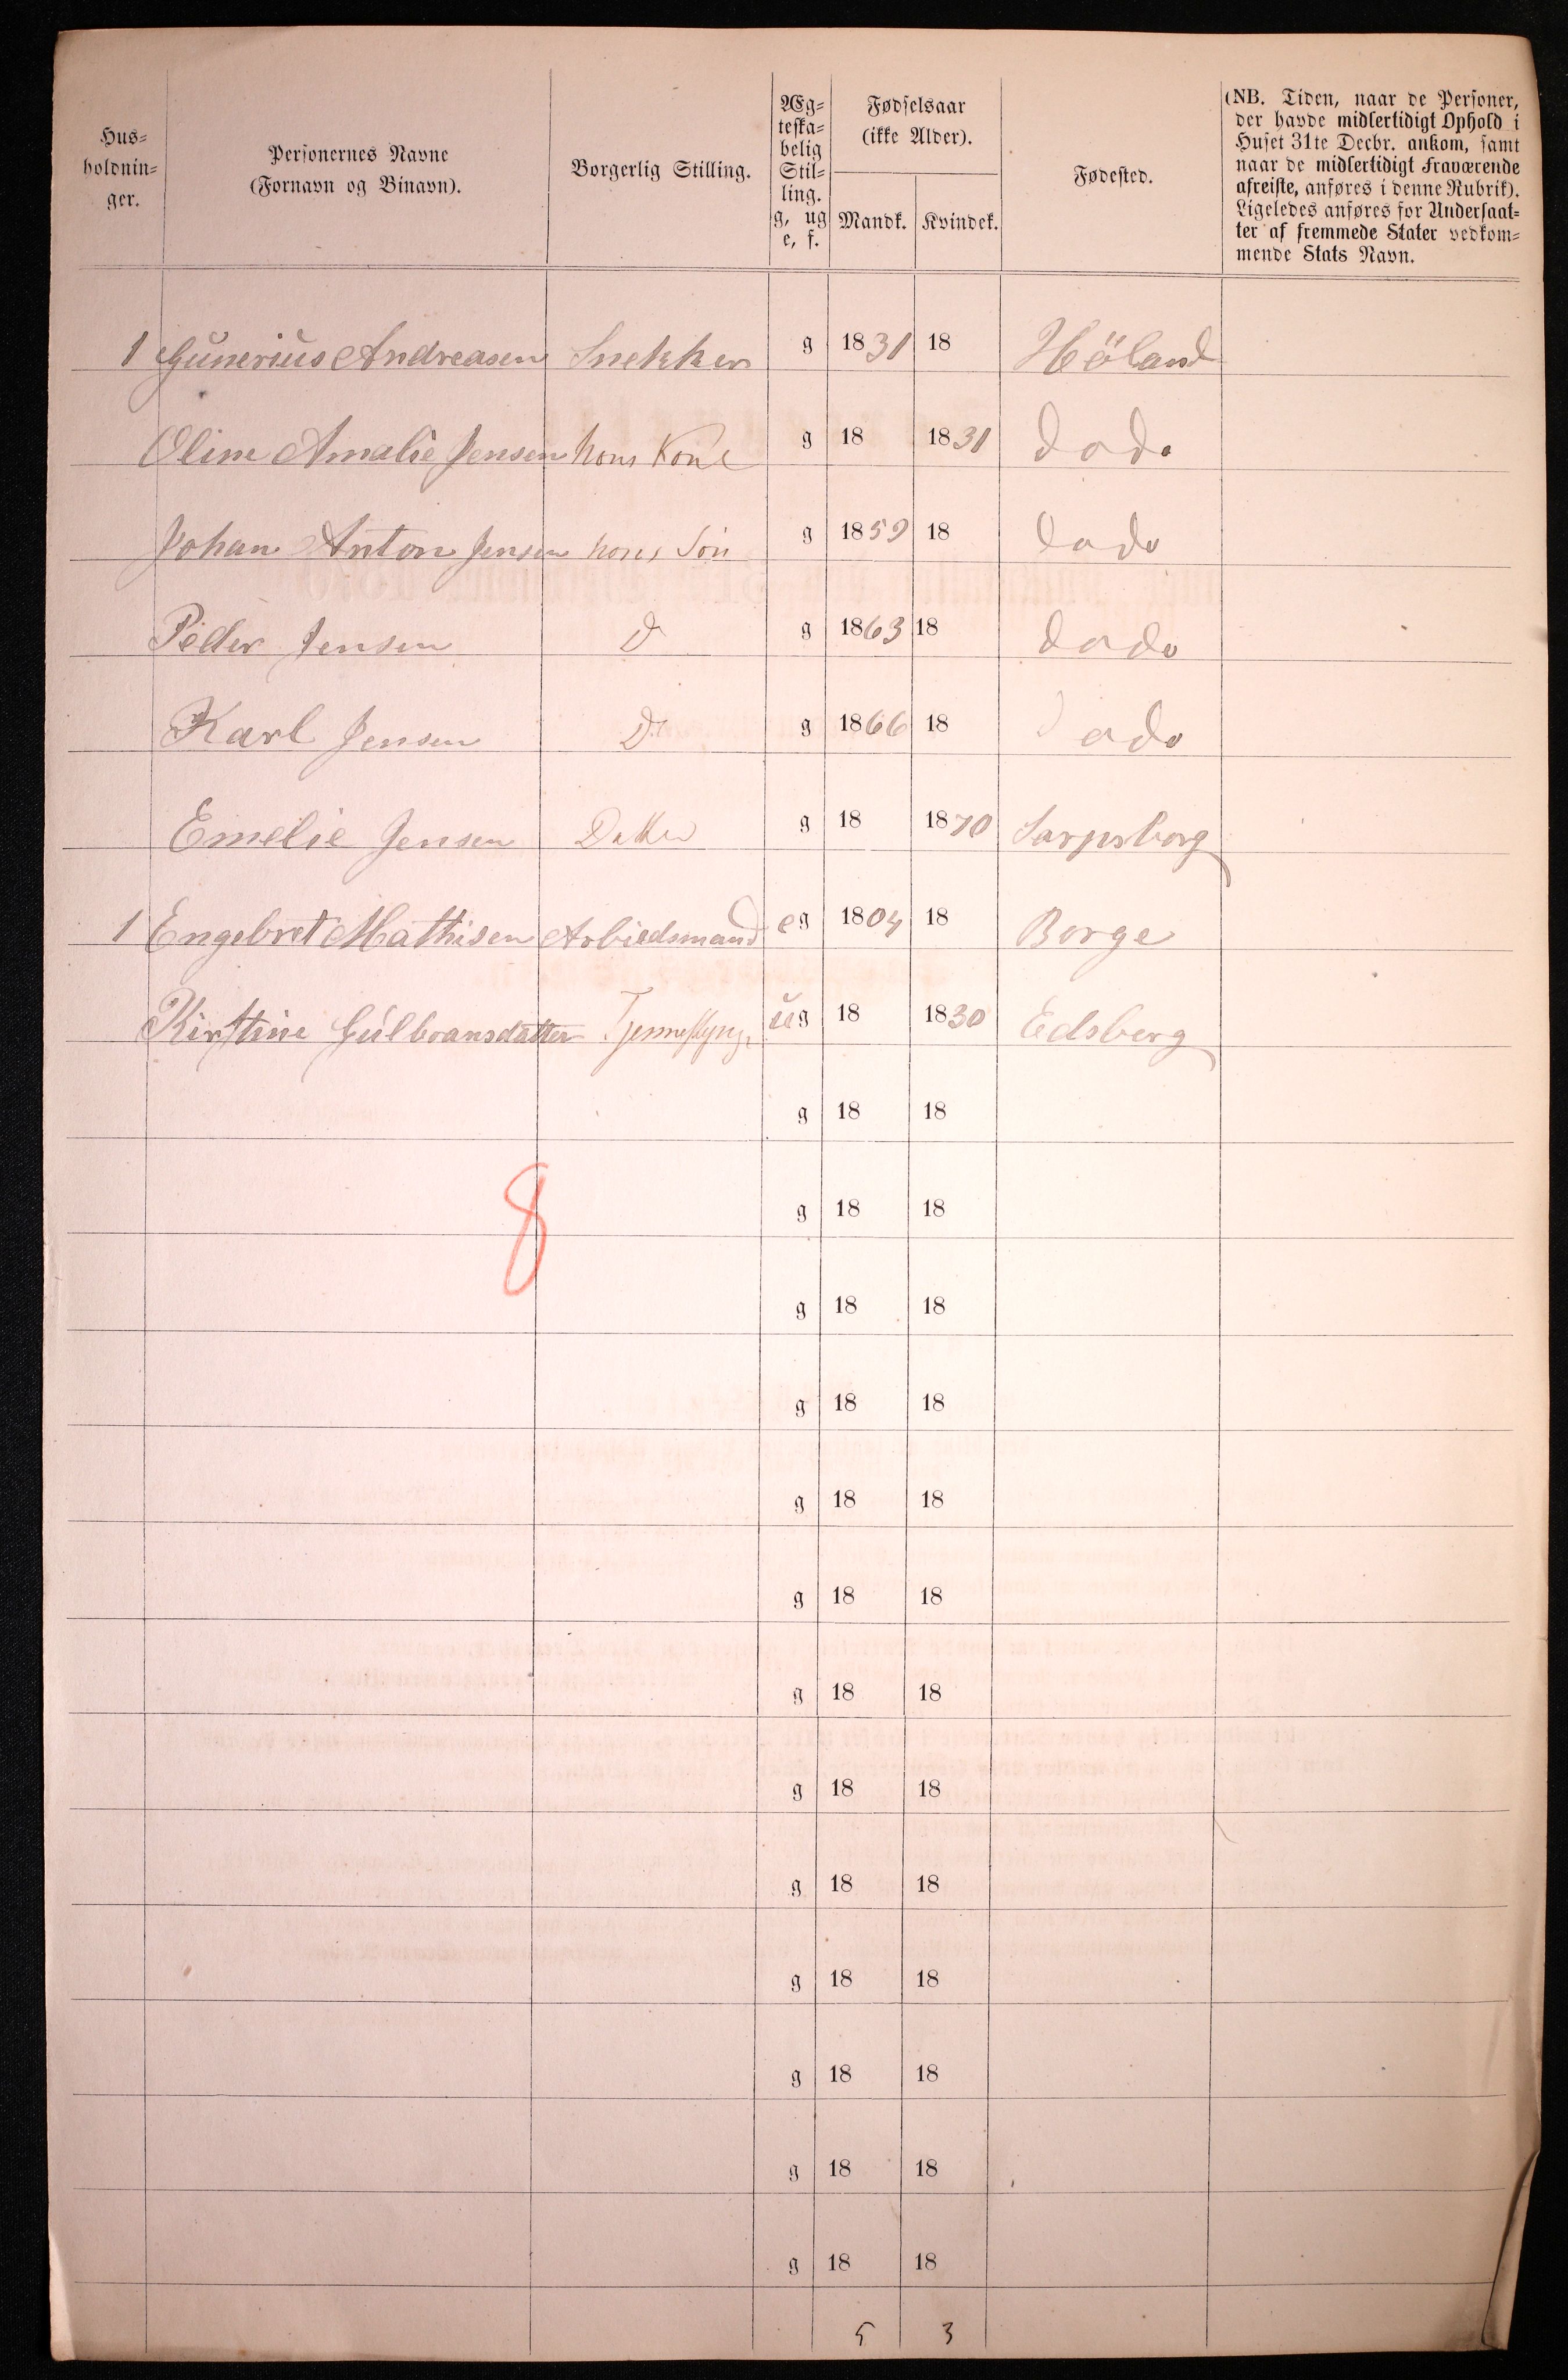 Hus-
holdnin-
ger.
Personernes Navne
(Fornavn og Binavn).
Borgerlig Stilling.
Æg-
teska-
belig
Stil-
ling.
g, ug
e, f.
Fødselsaar
(ikke Alder).
Mandk. Kvindek.
Fødested.
(NB. Tiden, naar de Personer,
der havde midlertidigt Ophold i
Huset 31te Decbr. ankom, samt
naar de midlertidigt Fraværende
afreiste, anføres i denne Rubrik).
Ligeledes anføres for Undersaat-
ter af fremmede Stater vedkom-
mende Stats Navn.
1 Gunerius Andreasen Snekker g 1831 18 Höland
Oline Amalie Jensen hans Kone g 18 1831 dodo
Johan Anton Jensen hans Sön g 1859 18 dodo
Peder Jensen D g 1863 18 dodo
Karl Jensen Do g 1866 18 dodo
Emelie Jensen Datter g 18 1870 Sarpsborg
1 Engebret Mathisen Arbiedsmand eg 1804 18 Borge
Kirstine Gulbransdatter Tjenestepige ug 18 1830 Edsberg
g 18 18
8
g 18 18
g 18 18
g 18 18
g 18 18
g 18 18
g 18 18
g 18 18
g 18 18
g 18 18
g 18 18
g 18 18
g 18 18
5 3